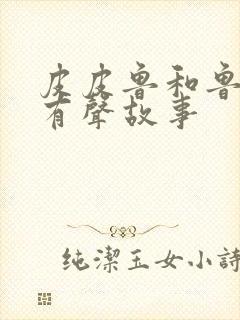 皮皮鲁和鲁
有聲故事
纯潔玉女小詩